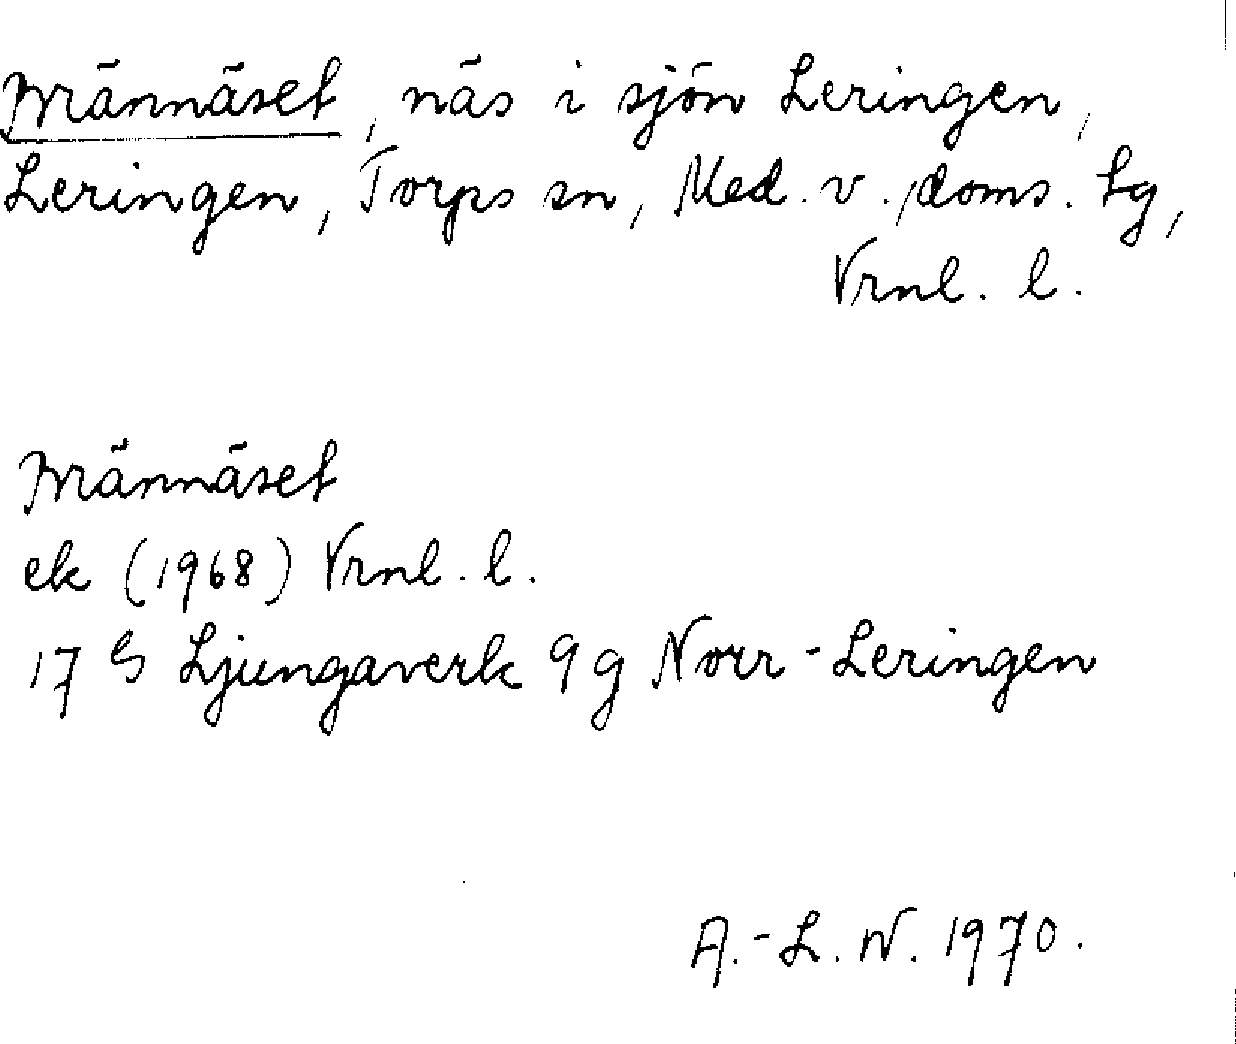 Männäset, näs i sjön Leringen,
Leringen, Torps sn, Med. v. doms. tg,
Vrnl. l.
Männäset
ek (1968) Vrnl. l.
17 G Ljungaverk 9 g Norr-Leringen
A.-L. N. 1970.